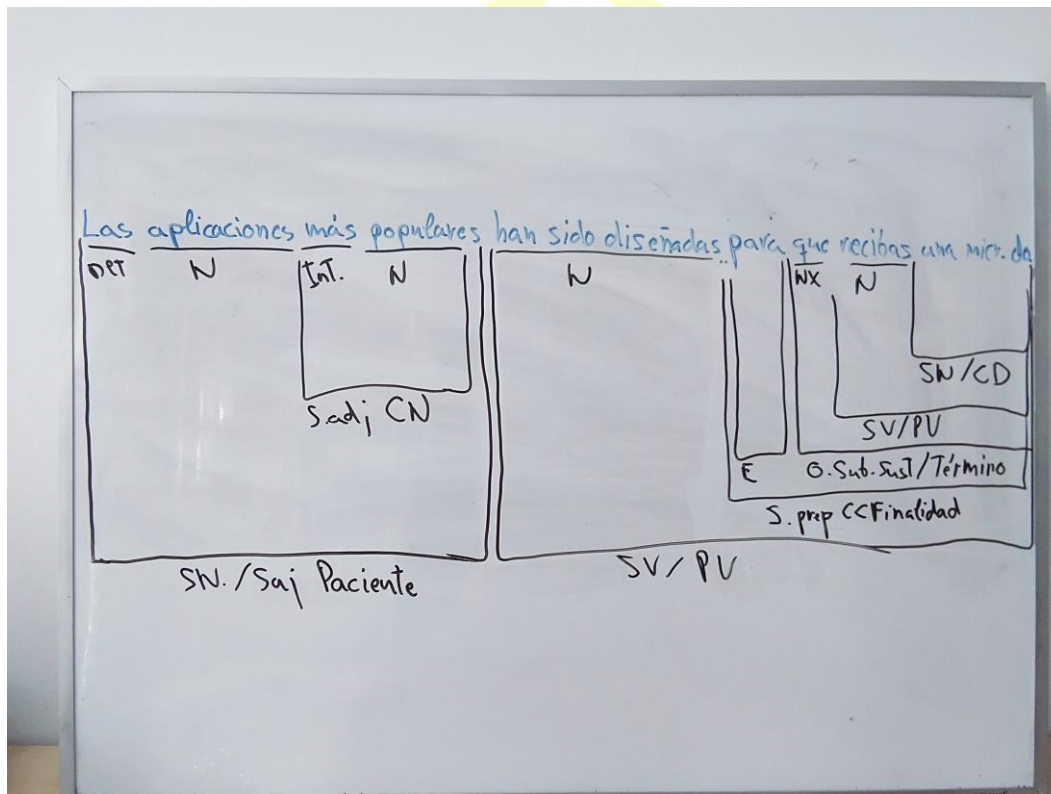 Las aplicaciones más populares han sido diseñadas para que recibas una micr. da
DET N Int. N N NX N
SN/CD
S.adj CN
SV/PV
E O.Sub.Sust/Término
S. prep CCFinalidad
SN./Suj Paciente SV/PV